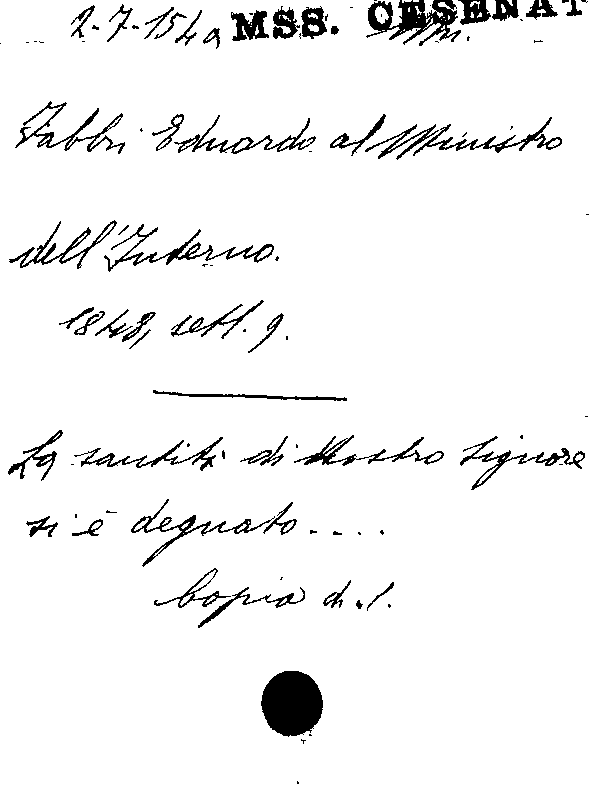 2-7-154a MSS. CESENAT
Fabbri Eduardo al Ministro
dell'Interno.
1848, sett. 9.
La santità di Nostro Signore
si è degnato....
Copia d.l.